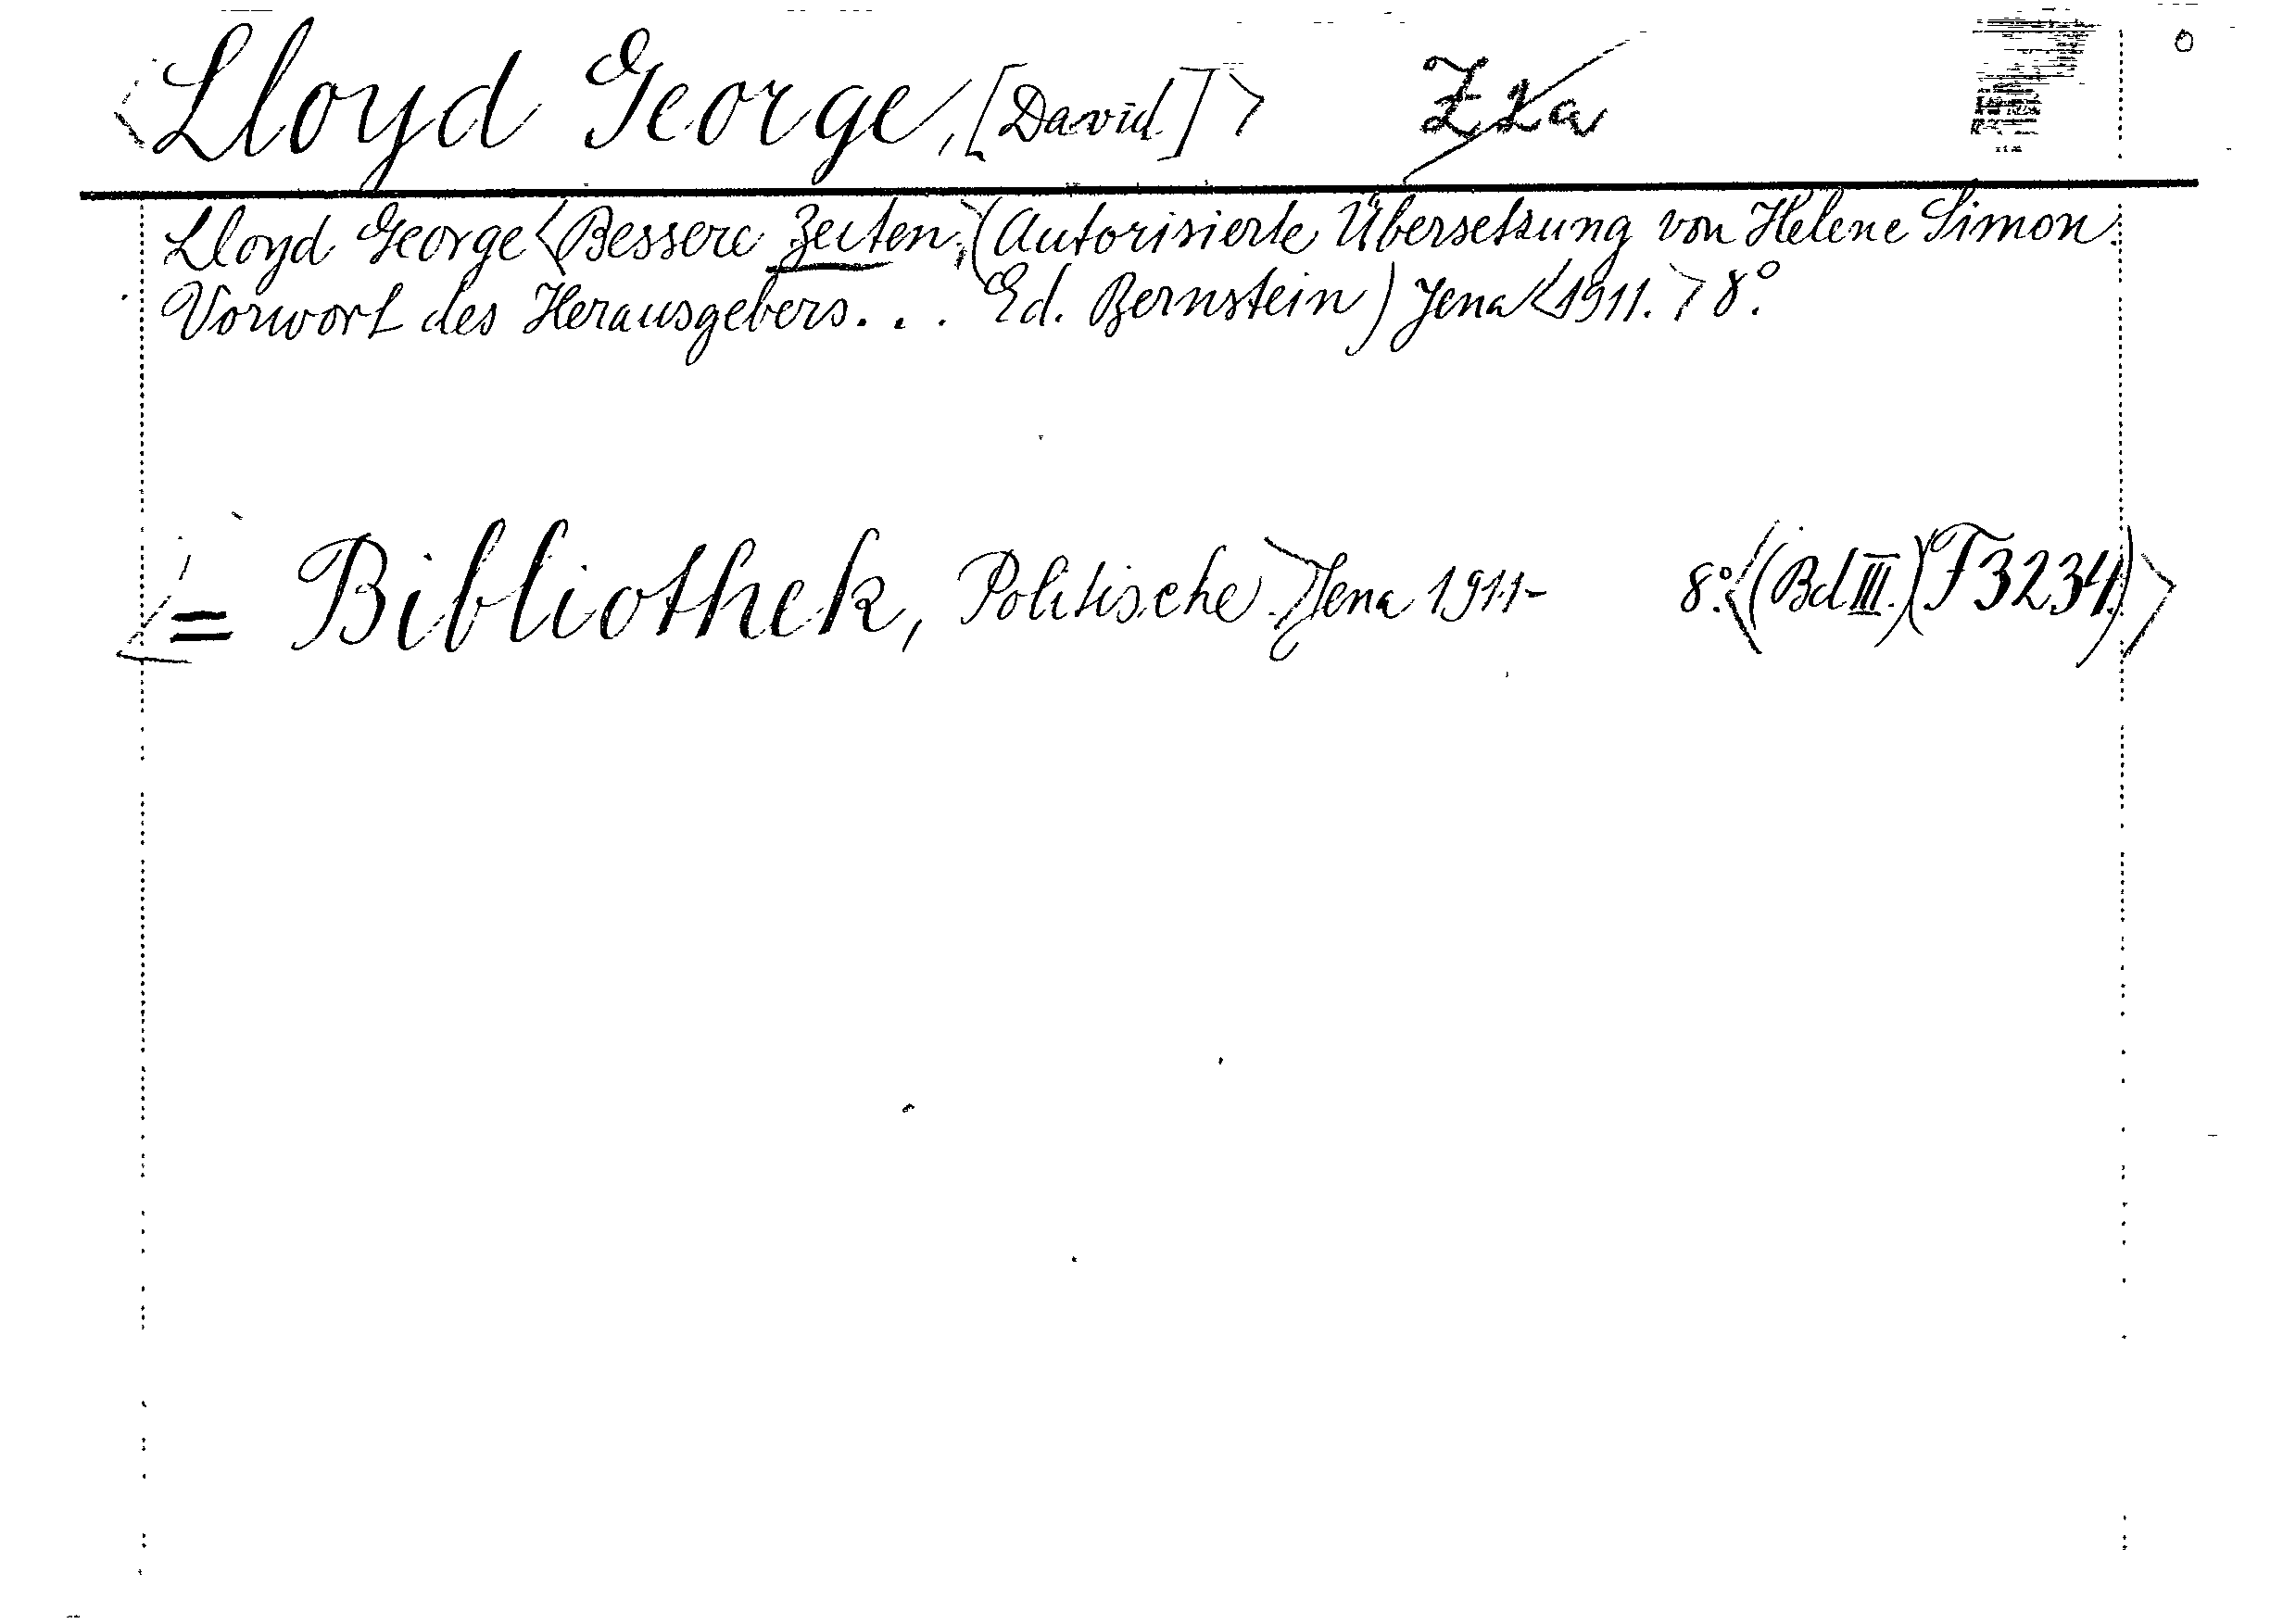 <Lloyd George, [David.]> Z x a
Lloyd George <Bessere Zeiten.> (Autorisierte Übersetzung von Helene Simon.
Vorwort des Herausgebers... Ed. Bernstein) Jena <1911.> 8°.
<= Bibliothek, Politische.> Jena 1911- 8°. <(Bd III.) (F3234.)>